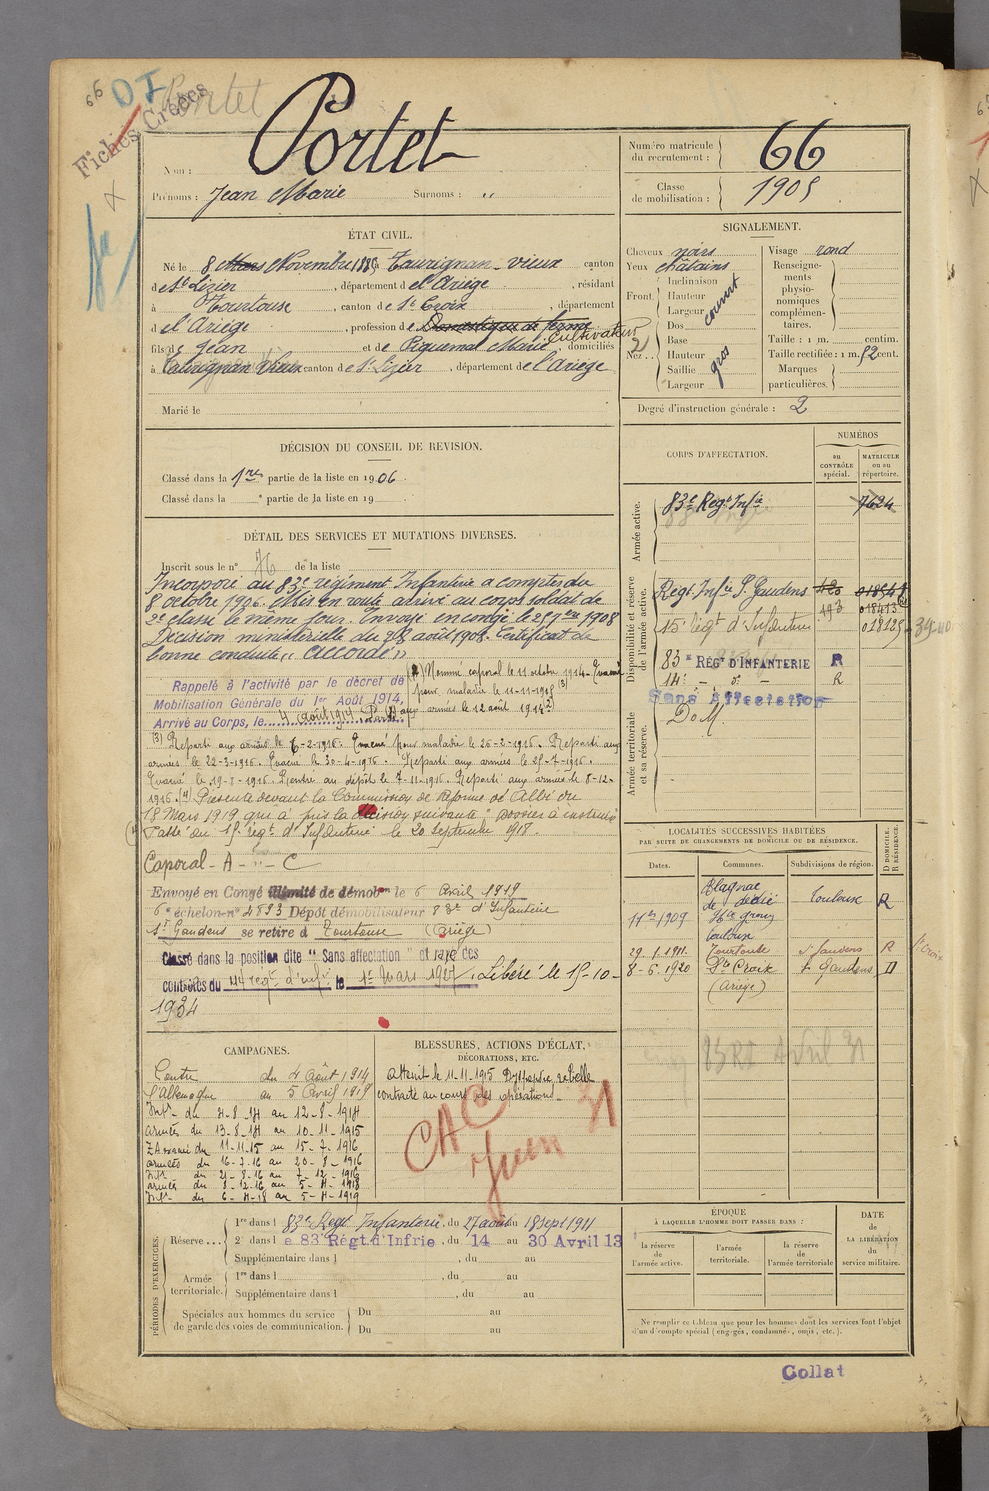 66 OI Portet
Fiches Créées
Nom : Portet
Prénoms : Jean Marie Surnoms : "
Numéro matricule du recrutement : 66
Classe de mobilisation : 1905
ÉTAT CIVIL.
Né le 8 Mars Novembre 1885, à Taurignan-vieux canton
de St Lizier, département de l'Ariège, résidant
à Tourtouse, canton de Ste Croix, département
de l'Ariège, profession de Domestique de ferme Cultivateur
fils de Jean et de Piquemal Marie, domiciliés
à Taurignan Vieux canton de St Lizier, département de l'Ariège
Marié le
SIGNALEMENT.
Cheveux noirs
Yeux châtains
Front Inclinaison
Hauteur
Largeur
couvert
Nez Dos
Base
Hauteur
Saillie
Largeur
gros
Visage rond
Renseignements physionomiques complémentaires.
Taille : 1 m. centim.
Taille rectifiée : 1 m. 52 cent.
Marques particulières.
Degré d'instruction générale : 2
DÉCISION DU CONSEIL DE REVISION.
Classé dans la 1re partie de la liste en 1906
Classé dans la e partie de la liste en 19
DÉTAIL DES SERVICES ET MUTATIONS DIVERSES.
Inscrit sous le n° 76 de la liste
Incorporé au 83e régiment Infanterie a compter du
8 octobre 1906. Mis en route arrivé au corps soldat de
2e classe le même jour. Envoyé en congé le 25 7bre 1908
Décision ministérielle du 28 août 1908. Certificat de
bonne conduite "Accordé"
Rappelé à l'activité par le décret de
Mobilisation Générale du 1er Août 1914,
Arrivé au Corps, le 4 août 1914
Nommé caporal le 11 octobre 1914 - Evacué
pour maladie le 11-11-1915 (3)
aux armées le 12 août 1914 (2)
(3) Reparti aux armées le 6-2-1916. Evacué pour maladie le 26-2-1916. Reparti aux
armées le 22-3-1916. Evacué le 30-4-1916. Reparti aux armées le 25-7-1916.
Evacué le 19-8-1916. Rentré au dépôt le 7-11-1916. Reparti aux armées le 8-12-
1916. (4) Présenté devant la Commission de Réforme de Albi du
18 Mars 1919 qui a pris la décision suivante "Dossier à instruire"
Passé au 15e régt d'Infanterie le 20 Septembre 1918.
Caporal - A - " - C
Envoyé en Congé illimité de démobon le 6 Avril 1919
6e échelon n° 4893 Dépôt démobilisateur 83e d'Infanterie
St Gaudens se retire à Tourtouse (Ariège)
Classé dans la position dite "Sans affectation" et rayé des
contrôles du 14e régt d'infie le 1er Mars 1927. Libéré le 15-10-
1934
CORPS D'AFFECTATION.
NUMÉROS
au CONTRÔLE spécial.
MATRICULE ou au répertoire.
Armée active.
83e Régt Infie 7624
Disponibilité et réserve de l'armée active.
Regt Infie St Gaudens
15e régt d'Infanterie
83e RÉGT D'INFANTERIE R
14e - d° - R
Sans Affectation
Armée territoriale et sa réserve.
D o M
LOCALITÉS SUCCESSIVES HABITÉES
PAR SUITE DE CHANGEMENTS DE DOMICILE OU DE RÉSIDENCE.
Dates. Communes. Subdivisions de région. D DOMICILE. R RÉSIDENCE.
11 7bre 1909 Blagnac Toulouse R
Toulouse
29-1-1911. Tourtouse St Gaudens R
8-6-1920 Ste Croix St Gaudens D
(Ariège)
83 RI Avril 31
CAMPAGNES.
Contre du 4 Août 1914
l'Allemagne au 5 Avril 1919
Intr du 4-8-14 au 12-8-1914
armées du 13-8-14 au 10-11-1915
Z.A evacué du 11-11-15 au 15-7-1916
armées du 16-7-16 au 20-8-1916
Intr du 21-8-16 au 7-12-1916
armées du 8-12-16 au 5-4-1918
Intr du 6-4-18 au 5-4-1919
BLESSURES, ACTIONS D'ÉCLAT,
DÉCORATIONS, ETC.
Atteint le 11-11-1915 Dyspepsie rebelle
contracté au cours des opérations
CAC
Juin 31
PÉRIODES D'EXERCICES.
Réserve... 1re dans l 83e Regt Infanterie, du 27 août au 18 sept 1911
2e dans l e 83 Régt d'Infrie, du 14 au 30 Avril 13
Supplémentaire dans l , du au
Armée territoriale. 1re dans l , du au
Supplémentaire dans l , du au
Spéciales aux hommes du service
de garde des voies de communication.
Du au
Du au
ÉPOQUE
À LAQUELLE L'HOMME DOIT PASSER DANS :
la réserve de l'armée active.
l'armée territoriale.
la réserve de l'armée territoriale
DATE de LA LIBÉRATION du service militaire.
Ne remplir ce tableau que pour les hommes dont les services font l'objet
d'un décompte spécial (engagés, condamnés, omis, etc.).
Collat